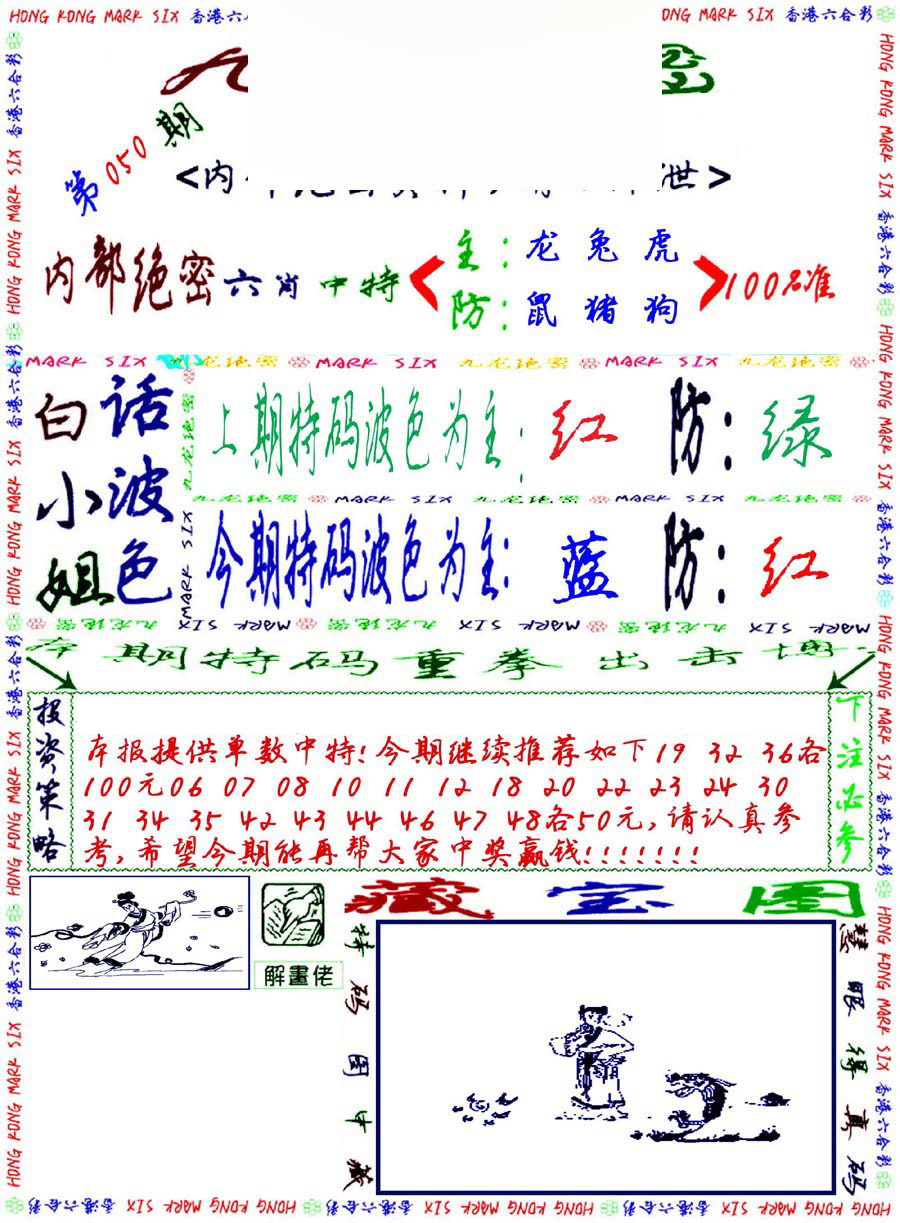 HONG KONG MARK SIX 香港六合彩
ONG MARK SIX 香港六合彩
第050期
<内
泄>
内部绝密六肖中特
主：龙兔虎
防：鼠猪狗
100%准
MARK SIX 九龙绝密 MARK SIX 九龙绝密 MARK SIX 九龙绝密
白话小波姐色
上期特码波色为主：红 防：绿
九龙绝密 MARK SIX 九龙绝密 MARK SIX 九龙绝密
今期特码波色为主：蓝 防：红
九龙绝密 MARK SIX 九龙绝密 MARK SIX 九龙绝密 MARK SIX
期特码重拳出击
投资策略
本报提供单数中特!今期继续推荐如下19 32 36各
100元06 07 08 10 11 12 18 20 22 23 24 30
31 34 35 42 43 44 46 47 48各50元,请认真参
考,希望今期能再帮大家中奖赢钱!!!!!!!
下注必参
解畫佬
藏宝图
特码图中藏
慧眼得真码
HONG KONG MARK SIX 香港六合彩